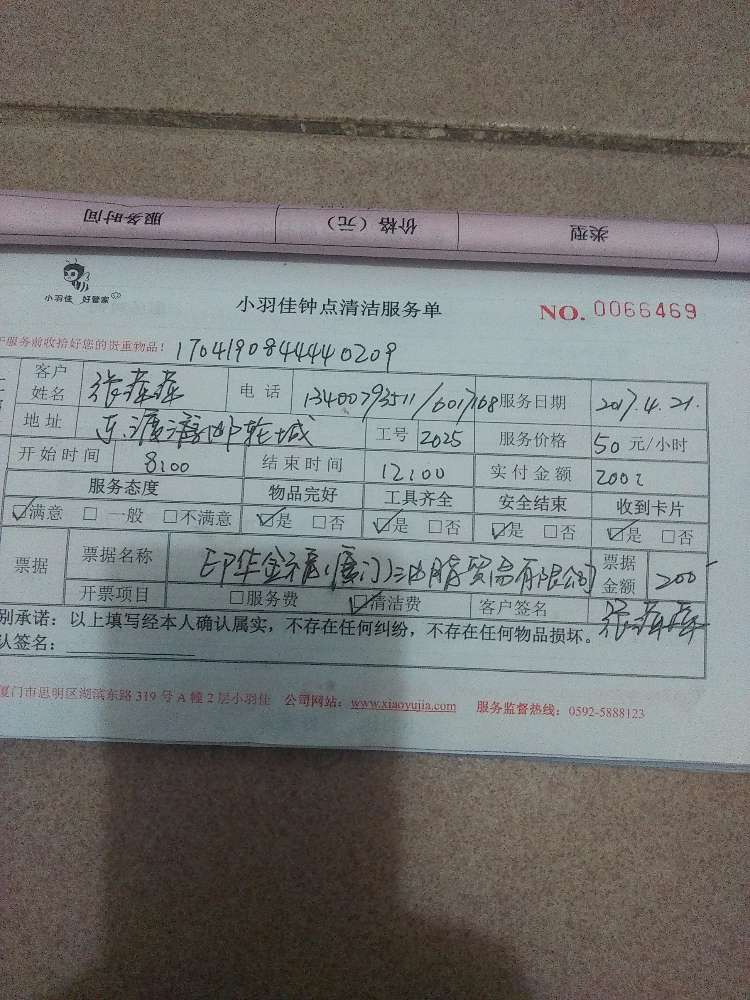 服务时间 价格（元） 类型
小羽佳 好管家
小羽佳钟点清洁服务单 NO. 0066469
服务前收拾好您的贵重物品！ 17041908444440209
客户姓名 电话 13400793511/6017168 服务日期 2017.4.21.
地址 东渡 邮轮城 工号 2025 服务价格 50 元/小时
开始时间 8:00 结束时间 12:00 实付金额 200
服务态度 物品完好 工具齐全 安全结束 收到卡片
☑满意 □一般 □不满意 ☑是 □否 ☑是 □否 ☑是 □否 ☑是 □否
票据 票据名称 印华金禧（厦门）油脂贸易有限公司 票据金额 200
开票项目 □服务费 ☑清洁费 客户签名
别承诺：以上填写经本人确认属实，不存在任何纠纷，不存在任何物品损坏。
认签名：
厦门市思明区湖滨东路 319 号 A 幢 2 层小羽佳 公司网站：www.xiaoyujia.com 服务监督热线：0592-5888123